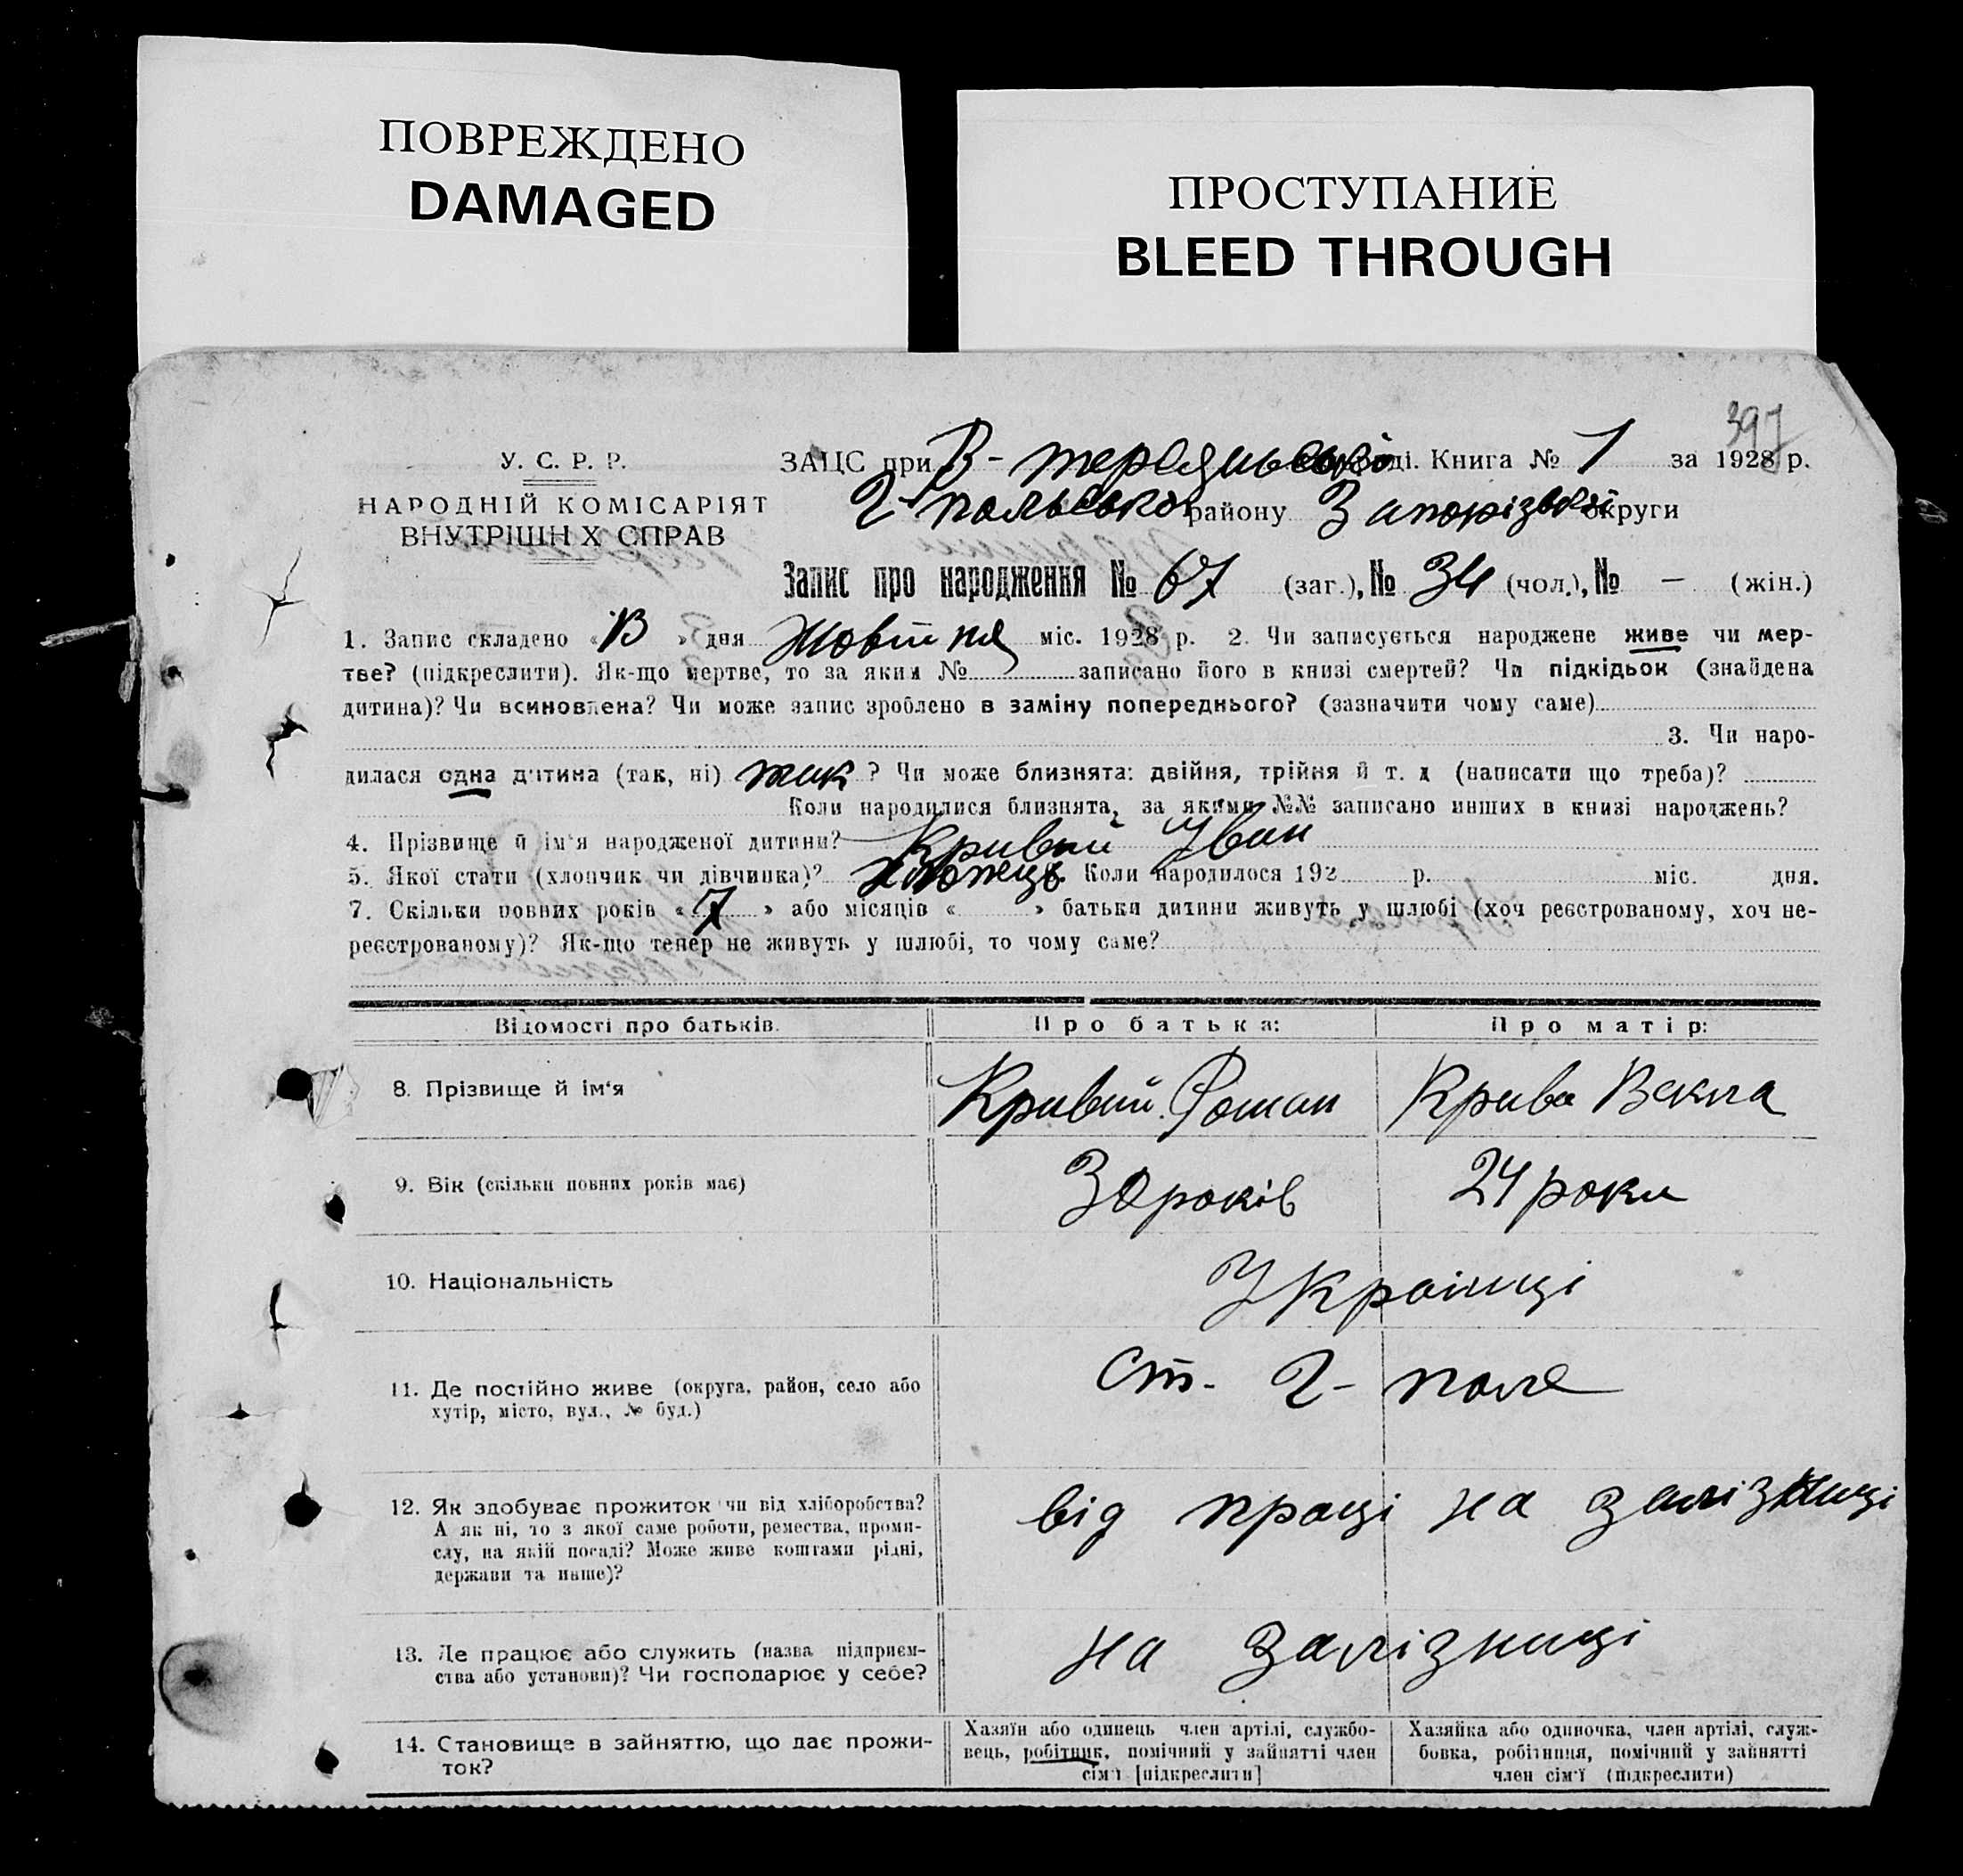 ПОВРЕЖДЕНО
DAMAGED
ПРОСТУПАНИЕ
BLEED THROUGH
397
У. С. Р. Р.
НАРОДНІЙ КОМІСАРІЯТ
ВНУТРІШН Х СПРАВ
ЗАЦС при В- Книга № 1 за 1928 р.
Г-польсько району Запорізької округи
Запис про народження № 67 (заг.), № 34 (чол.), № — (жін.)
1. Запис складено « » дня Жовтня міс. 1928 р. 2. Чи записується народжене живе чи мер-
тве? (підкреслити). Як-що мертве, то за яким № записано його в книзі смертей? Чи підкідьок (знайдена
дитина)? Чи всиновлена? Чи може запис зроблено в заміну попереднього? (зазначити чому саме)
3. Чи наро-
дилася одна дитина (так, ні) так ? Чи може близнята: двійня, трійня й т. д (написати що треба)?
Коли народилися близнята, за якими №№ записано инших в книзі народжень?
4. Прізвище й ім'я народженої дитини? Кривий Іван
5. Якої стати (хлопчик чи дівчинка)? хлопець Коли народилося 192 р. міс. дня.
7. Скільки повних років « 7 » або місяців « » батьки дитини живуть у шлюбі (хоч реєстрованому, хоч не-
реєстрованому)? Як-що тепер не живуть у шлюбі, то чому саме?
Відомості про батьків. Про батька: Про матір:
8. Прізвище й ім'я Кривий Роман Крива Векла
9. Вік (скільки повних років має) 30 років 24 роки
10. Національність Українці
11. Де постійно живе (округа, район, село або
хутір, місто, вул., № буд.) Ст. Г- поле
12. Як здобуває прожиток чи від хліборобства?
А як ні, то з якої саме роботи, ремества, проми-
слу, на якій посаді? Може живе коштами рідні,
держави та инше)? від праці на залізниці
13. Де працює або служить (назва підприєм-
ства або установи)? Чи господарює у себе? на залізниці
14. Становище в зайняттю, що дає прожи-
ток?
Хазяїн або одинець член артілі, службо-
вець, робітник, помічний у зайнятті член
сім'ї [підкреслити]
Хазяйка або одиночка, член артілі, служ-
бовка, робітниця, помічний у зайнятті
член сім'ї (підкреслити)